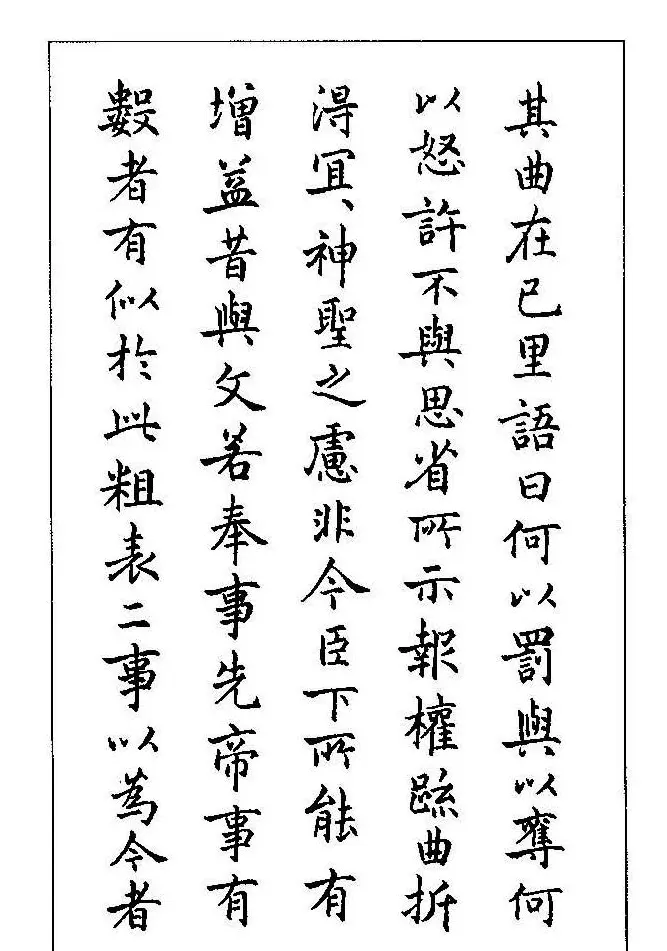 其曲在已里語曰何以罰與以奪何
以怒許不與思省所示報權踈曲折
得冝、神聖之慮非今臣下所能有
增益昔與文若奉事先帝事有
數者有似於此粗表二事以為今者